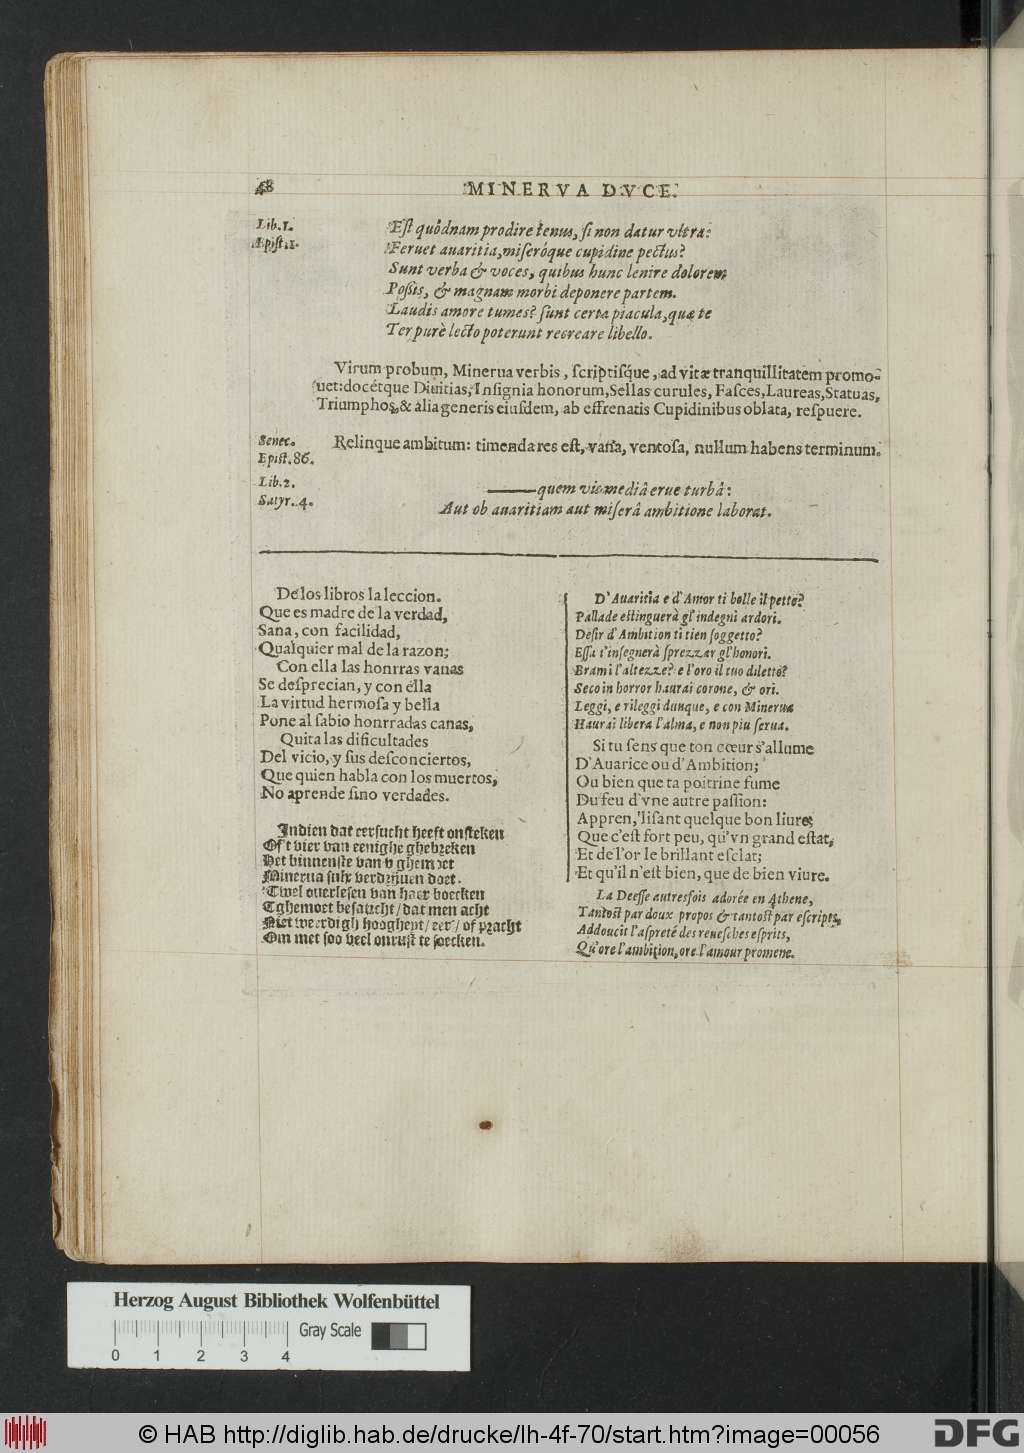 48
MINERVA DVCE.
Lib. 1.
Epist. 1.
Est quôdnam prodire tenus, si non datur vltrà:
Feruet auaritia, miseróque cupidine pectus?
Sunt verba & voces, quibus hunc lenire dolorem
Possis, & magnam morbi deponere partem.
Laudis amore tumes? sunt certa piacula, quæ te
Ter purè lecto poterunt recreare libello.
Virum probum, Minerua verbis, scriptisque, ad vitæ tranquillitatem promo-
uet: docétque Diuitias, Insignia honorum, Sellas curules, Fasces, Laureas, Statuas,
Triumphos, & alia generis eiusdem, ab effrenatis Cupidinibus oblata, respuere.
Senec.
Epist. 86.
Relinque ambitum: timenda res est, vana, ventosa, nullum habens terminum.
Lib. 2.
Satyr. 4.
——quem vis mediâ erue turbâ:
Aut ob auaritiam aut miserâ ambitione laborat.
De los libros la leccion.
Que es madre de la verdad,
Sana, con facilidad,
Qualquier mal de la razon;
Con ella las honrras vanas
Se desprecian, y con ella
La virtud hermosa y bella
Pone al sabio honrradas canas,
Quita las dificultades
Del vicio, y sus desconciertos,
Que quien habla con los muertos,
No aprende sino verdades.
Indien dat eersucht heeft onsteken
Oft vier van eenighe ghebreken
Het binnenste van v ghemoet
Minerua sulx verdrijuen doet.
Twel ouerlesen van haer boecken
Tghemoet besaucht / dat men acht
Niet weerdigh hooghept / eer / of pracht
Om met soo veel onrust te soecken.
D'Auaritia e d'Amor ti bolle il petto?
Pallade estinguerà gl'indegni ardori.
Desir d'Ambition ti tien soggetto?
Essa t'insegnerà sprezzar gl'honori.
Brami l'altezze? e l'oro il tuo diletto?
Seco in horror haurai corone, & ori.
Leggi, e rileggi dunque, e con Minerua
Haurai libera l'alma, e non piu serua.
Si tu sens que ton cœur s'allume
D'Auarice ou d'Ambition;
Ou bien que ta poitrine fume
Du feu d'vne autre passion:
Appren, lisant quelque bon liure;
Que c'est fort peu, qu'vn grand estat,
Et de l'or le brillant esclat;
Et qu'il n'est bien, que de bien viure.
La Deesse autresfois adorée en Athene,
Tantost par doux propos & tantost par escripts,
Addoucit l'aspreté des reuesches esprits,
Qu'ore l'ambition, ore l'amour promene.
Herzog August Bibliothek Wolfenbüttel
Gray Scale
0 1 2 3 4
© HAB http://diglib.hab.de/drucke/lh-4f-70/start.htm?image=00056
DFG